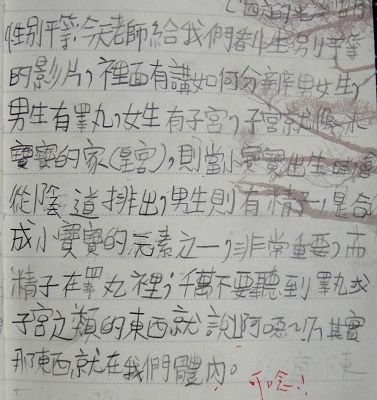 性別平等:今天老師給我們看性別平等
的影片,裡面有講如何分辨男女生,
男生有睪丸,女生有子宮,子宮就像小
寶寶的家(皇宮),則當小寶寶出生時會
從陰道排出,男生則有精子,是合
成小寶寶的元素之一,非常重要,而
精子在睪丸裡,千萬不要聽到睪丸或
子宮之類的東西就說阿噁~,其實
那東西就在我們體內。